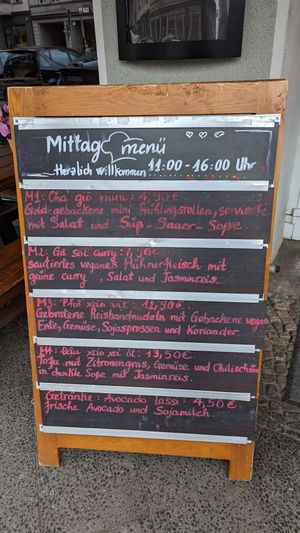 Mittagsmenü
Herzlich willkommen 11:00-16:00 Uhr
M1: Chả giò mini: 4,90 €
Gold-gebackene mini Frühlingsrollen, serviert
mit Salat und Süp-Sauer-Soße
M2: Gà sốt curry: 7,90 €
sautiertes veganes Hühnerfleisch mit
grüne curry, Salat und Jasminreis.
M3: Phở xào vịt: 12,90€
Gebratene Reisbandnudeln mit Gebackene vegan
Ente, Gemüse, Sojasprossen und Koriander.
M4: Đậu xào xả ớt: 13,50€
Tofu mit Zitronengras, Gemüse und Chilischoten
in dunkle Soße mit Jasminreis.
Getränke: Avocado Lassi: 4,50€
frische Avocado und Sojamilch.